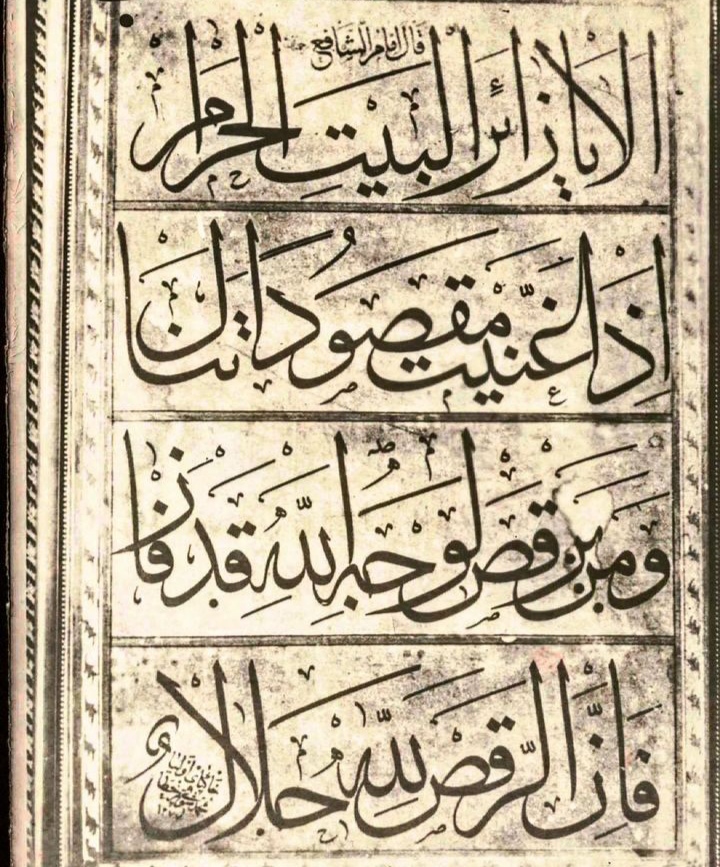 قال امام الشافعي
الا يا زائر البيت الحرام
اذا غنيت مقصودا ينال
ومن يرقص لوجه الله قد فاز
فان الرقص لله حلال